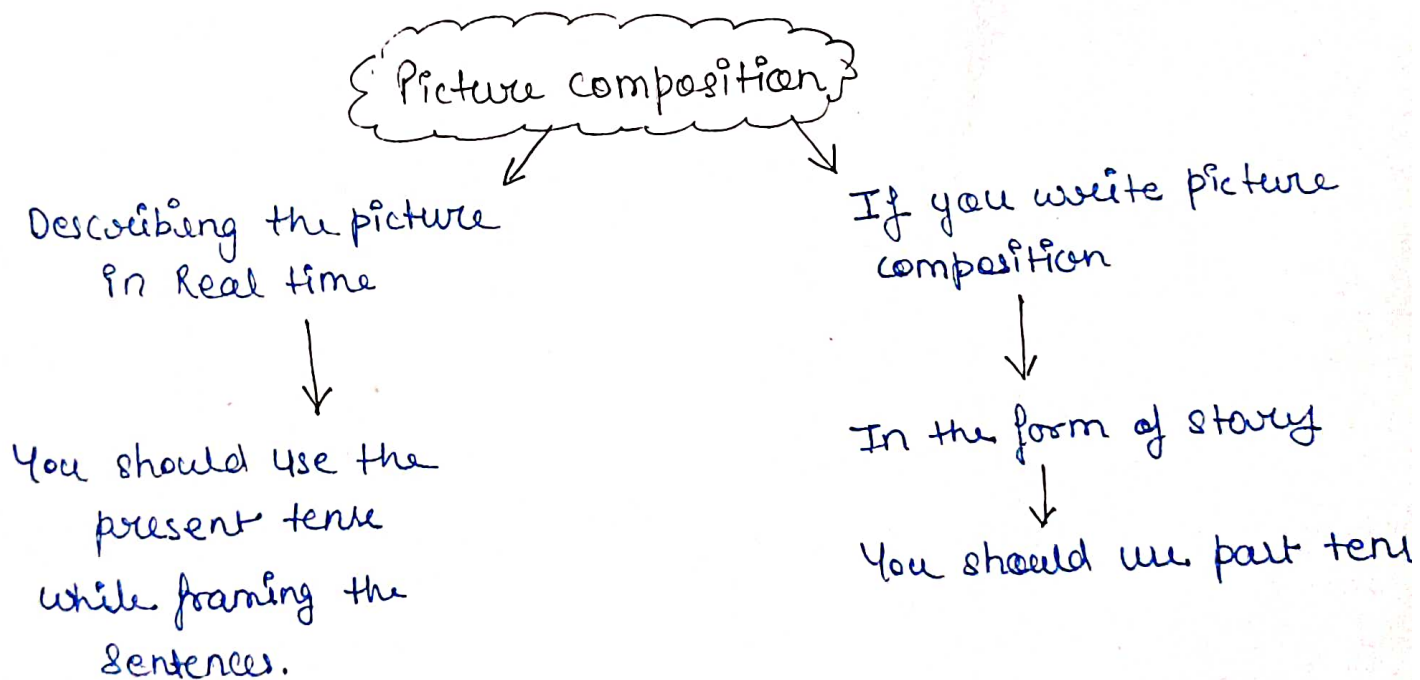 Picture composition
Describing the picture
in Real time
You should use the
present tense
while framing the
sentences.
If you write picture
composition
In the form of story
You should use past tens